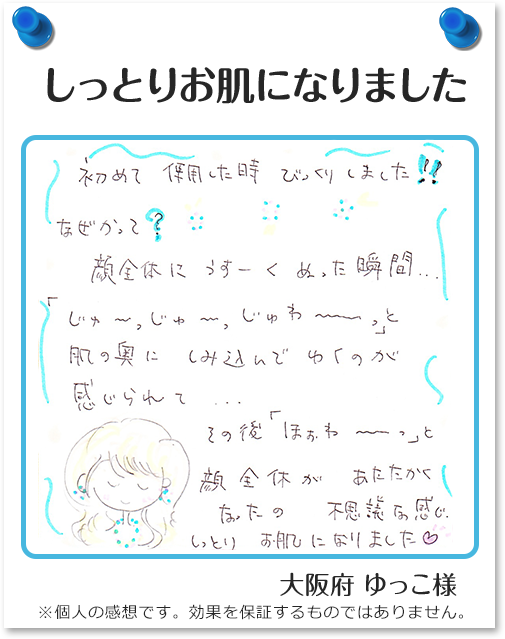 しっとりお肌になりました
初めて 使用した時 びっくり しました!!
なぜかって?
顔全体に うすーく ぬった瞬間...
「じゅ〜っ じゅ〜っ じゅわ〜〜っ」と
肌の奥に しみ込んで ゆくのが
感じられて ...
その後「ほぉわ〜〜っ」と
顔全体が あたたかく
なったの 不思議な感じ.
しっとり お肌になりました♡
大阪府 ゆっこ様
※個人の感想です。効果を保証するものではありません。